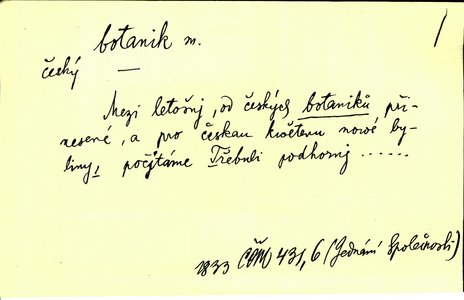 botanik m.
český —
Mezi letošnj, od českých botaniků při-
nesené, a pro českau květenu nové by-
liny, počjtáme Třebuli podhornj ......
1833 ČČM 431,6 (Jednání Společnosti)